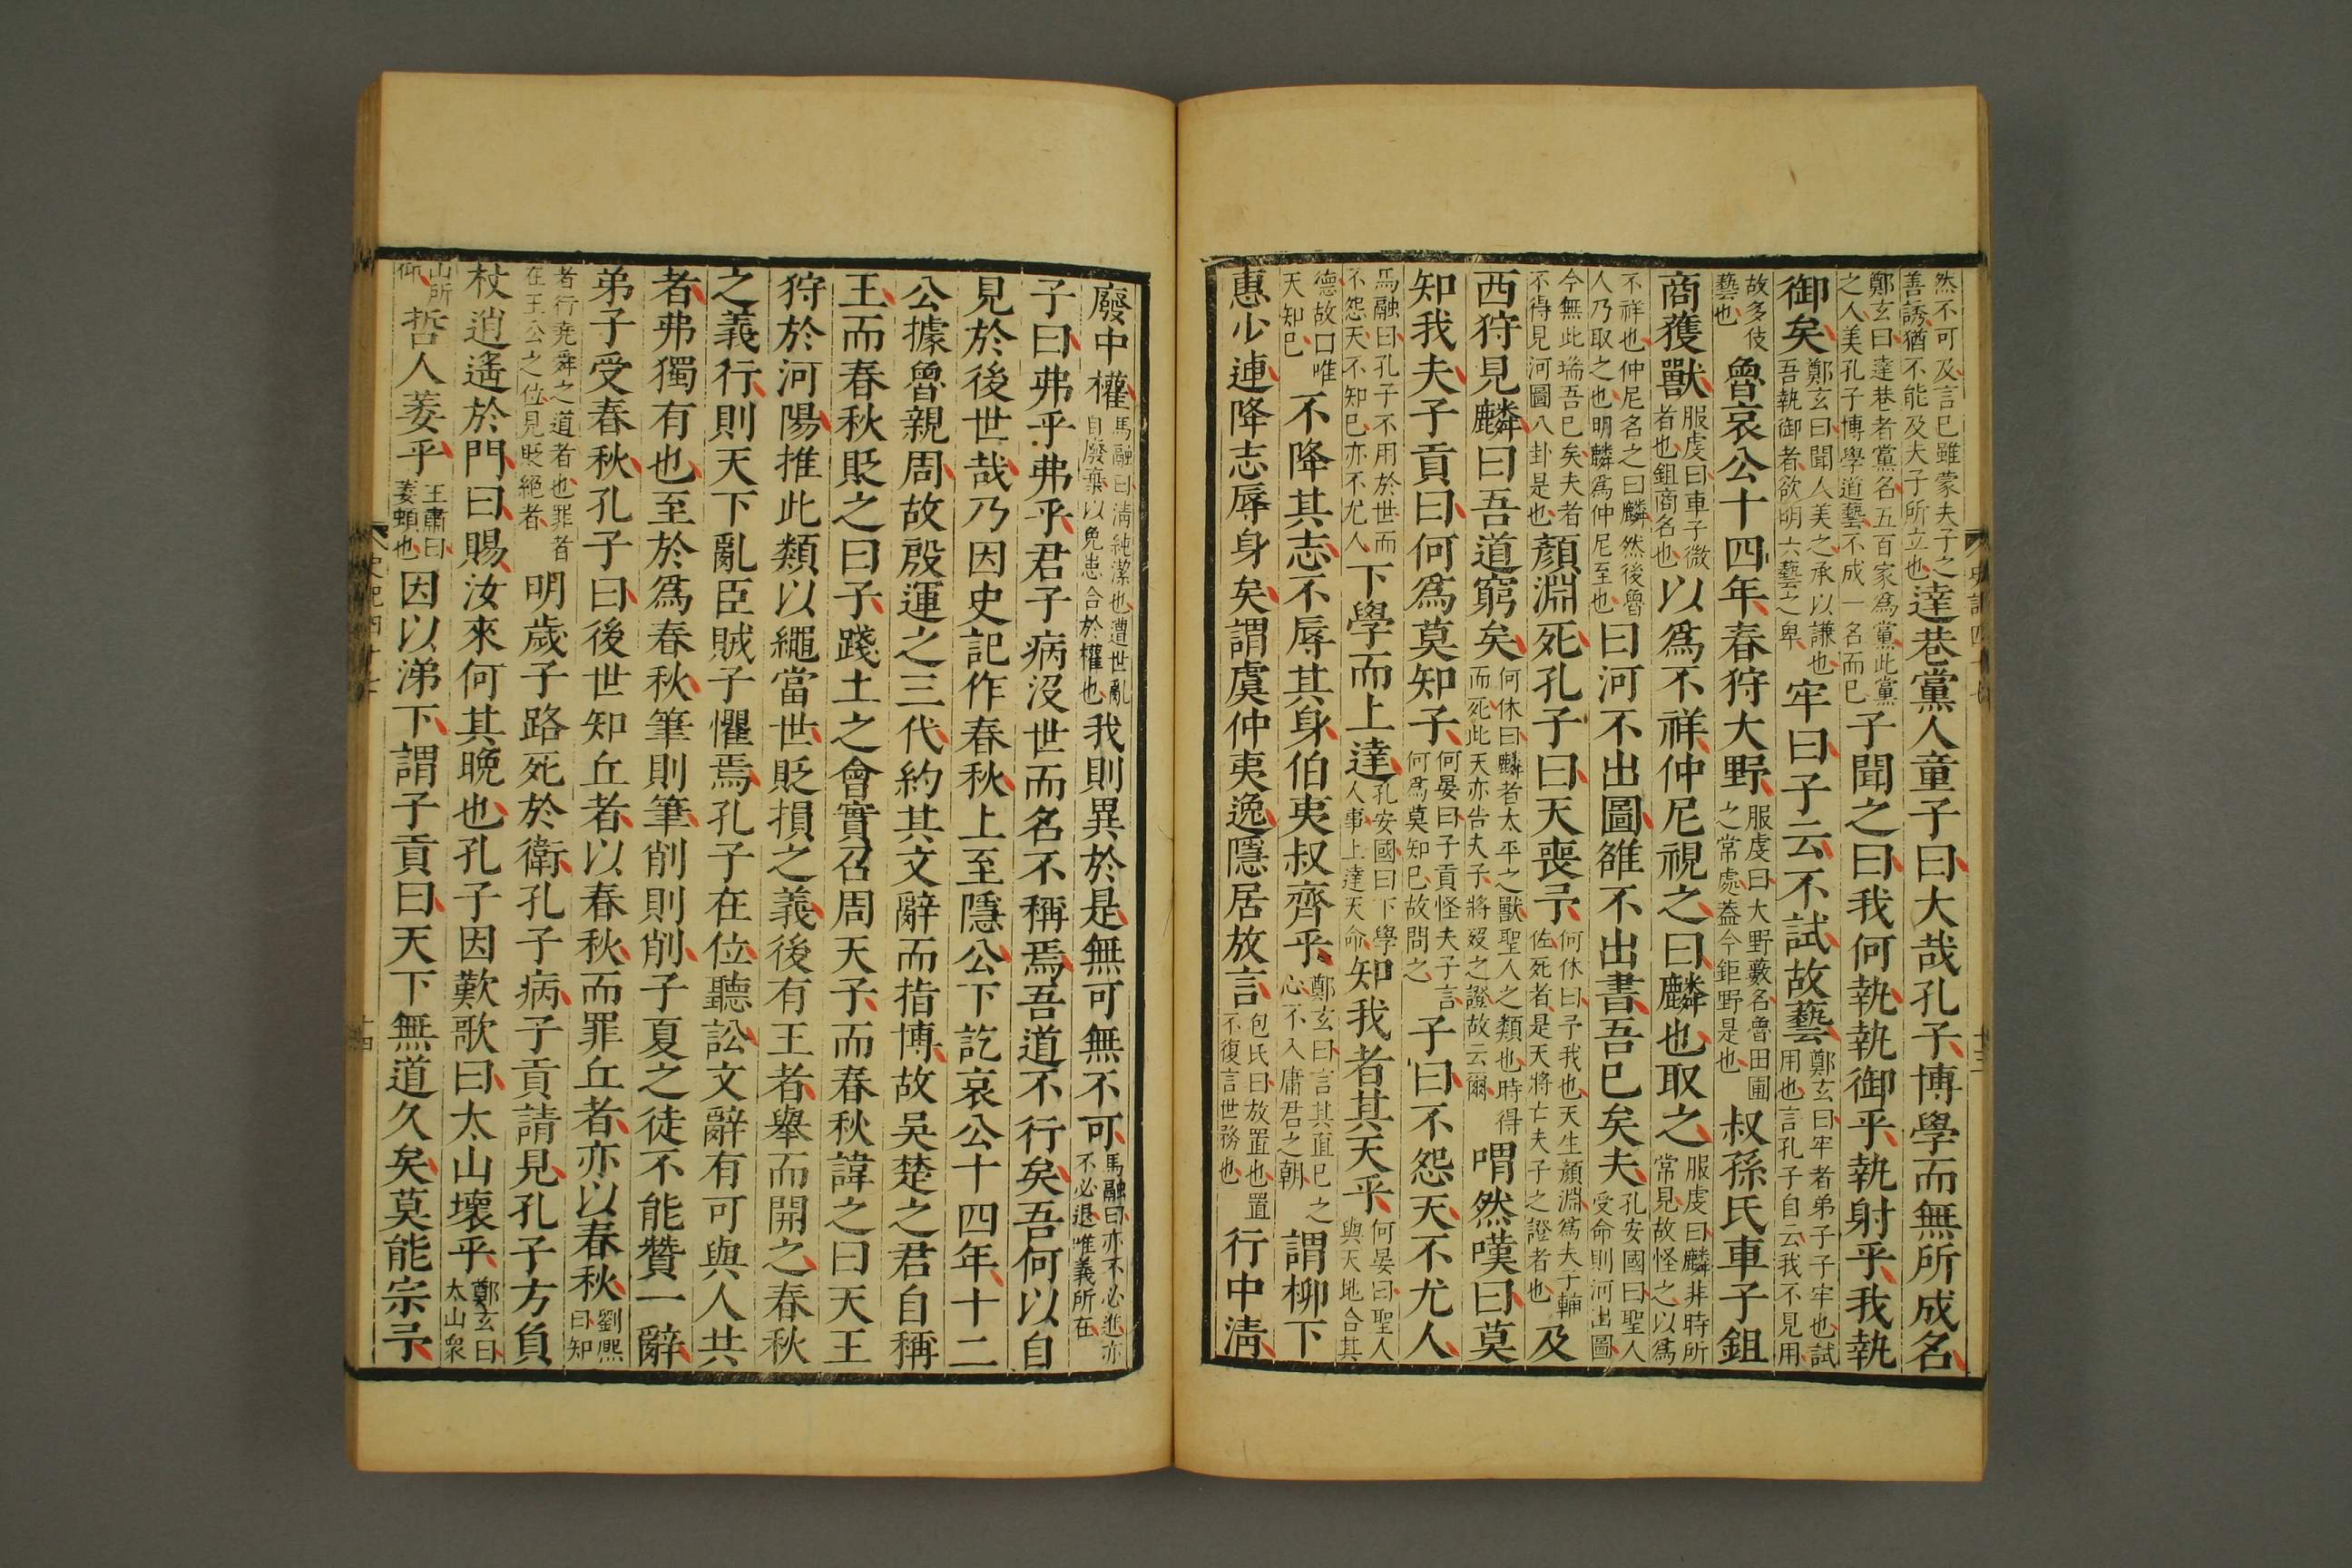 然不可及言已雖蒙夫子之善誘猶不能及夫子所立也達巷黨人童子曰大哉孔子博學而無所成名
鄭玄曰達巷者黨名五百家爲黨此黨之人美孔子博學道藝不成一名而已子聞之曰我何執執御乎執射乎我執
御矣鄭玄曰聞人美之承以謙也吾執御者欲明六藝之卑牢曰子云不試故藝鄭玄曰牢者弟子子牢也試用也言孔子自云我不見用
故多伎藝也魯哀公十四年春狩大野服虔曰大野藪名魯田圃之常處蓋今鉅野是也叔孫氏車子鉏
商獲獸服虔曰車子微者也鉏商名也以爲不祥仲尼視之曰麟也取之服虔曰麟非時所常見故怪之以爲
不祥也仲尼名之曰麟然後魯人乃取之也明麟爲仲尼至也曰河不出圖雒不出書吾已矣夫孔安國曰聖人受命則河出圖
今無此瑞吾已矣夫者不得見河圖八卦是也顏淵死孔子曰天喪予何休曰予我也天生顏淵爲夫子輔佐死者是天將亡夫子之證者也及
西狩見麟曰吾道窮矣何休曰麟者太平之獸聖人之類也時得而死此天亦告夫子將歿之證故云爾喟然嘆曰莫
知我夫子貢曰何爲莫知子何晏曰子貢怪夫子言何爲莫知已故問之子曰不怨天不尤人
馬融曰孔子不用於世而不怨天不知已亦不尤人下學而上達孔安國曰下學人事上達天命知我者其天乎何晏曰聖人與天地合其
德故曰唯天知已不降其志不辱其身伯夷叔齊乎鄭玄曰言其直已之心不入庸君之朝謂柳下
惠少連降志辱身矣謂虞仲夷逸隱居放言包氏曰放置也置不復言世務也行中清
廢中權馬融曰清純潔也遭世亂自廢棄以免患合於權也我則異於是無可無不可馬融曰亦不必進亦不必退唯義所在
子曰弗乎弗乎君子病沒世而名不稱焉吾道不行矣吾何以自
見於後世哉乃因史記作春秋上至隱公下訖哀公十四年十二
公據魯親周故殷運之三代約其文辭而指博故吳楚之君自稱
王而春秋貶之曰子踐土之會實召周天子而春秋諱之曰天王
狩於河陽推此類以繩當世貶損之義後有王者舉而開之春秋
之義行則天下亂臣賊子懼焉孔子在位聽訟文辭有可與人共
者弗獨有也至於爲春秋筆則筆削則削子夏之徒不能贊一辭
弟子受春秋孔子曰後世知丘者以春秋而罪丘者亦以春秋劉熙曰知
者行堯舜之道者也罪者在王公之位見貶絕者明歲子路死於衛孔子病子貢請見孔子方負
杖逍遙於門曰賜汝來何其晚也孔子因歎歌曰太山壞乎鄭玄曰太山衆
山所仰哲人萎乎王肅曰萎頓也因以涕下謂子貢曰天下無道久矣莫能宗予